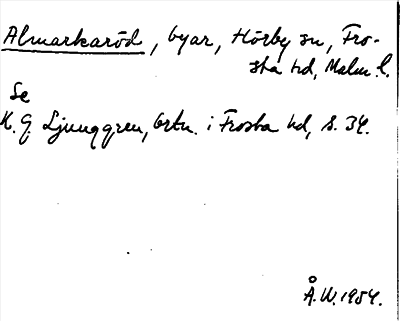 Almarkaröd, byar, Hörby sn, Fro-
sta hd, Malm. l.
Se
K. G. Ljunggren, Ortn. i Frosta hd, s. 34.
Å.W. 1954.